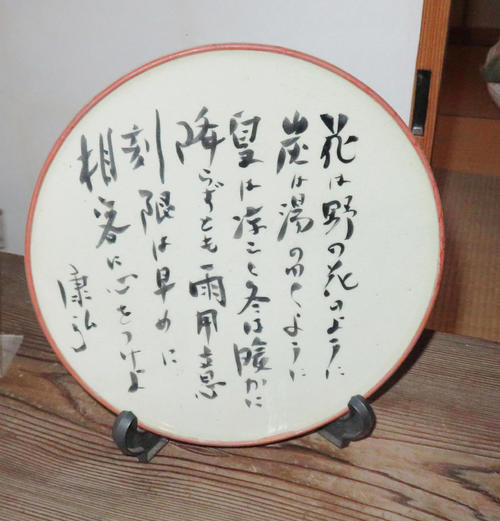 花は野の花のように
炭は湯のわくように
夏は涼しく冬は暖かに
降らずとも雨用意
刻限は早めに
相客に心をつけよ
康弘